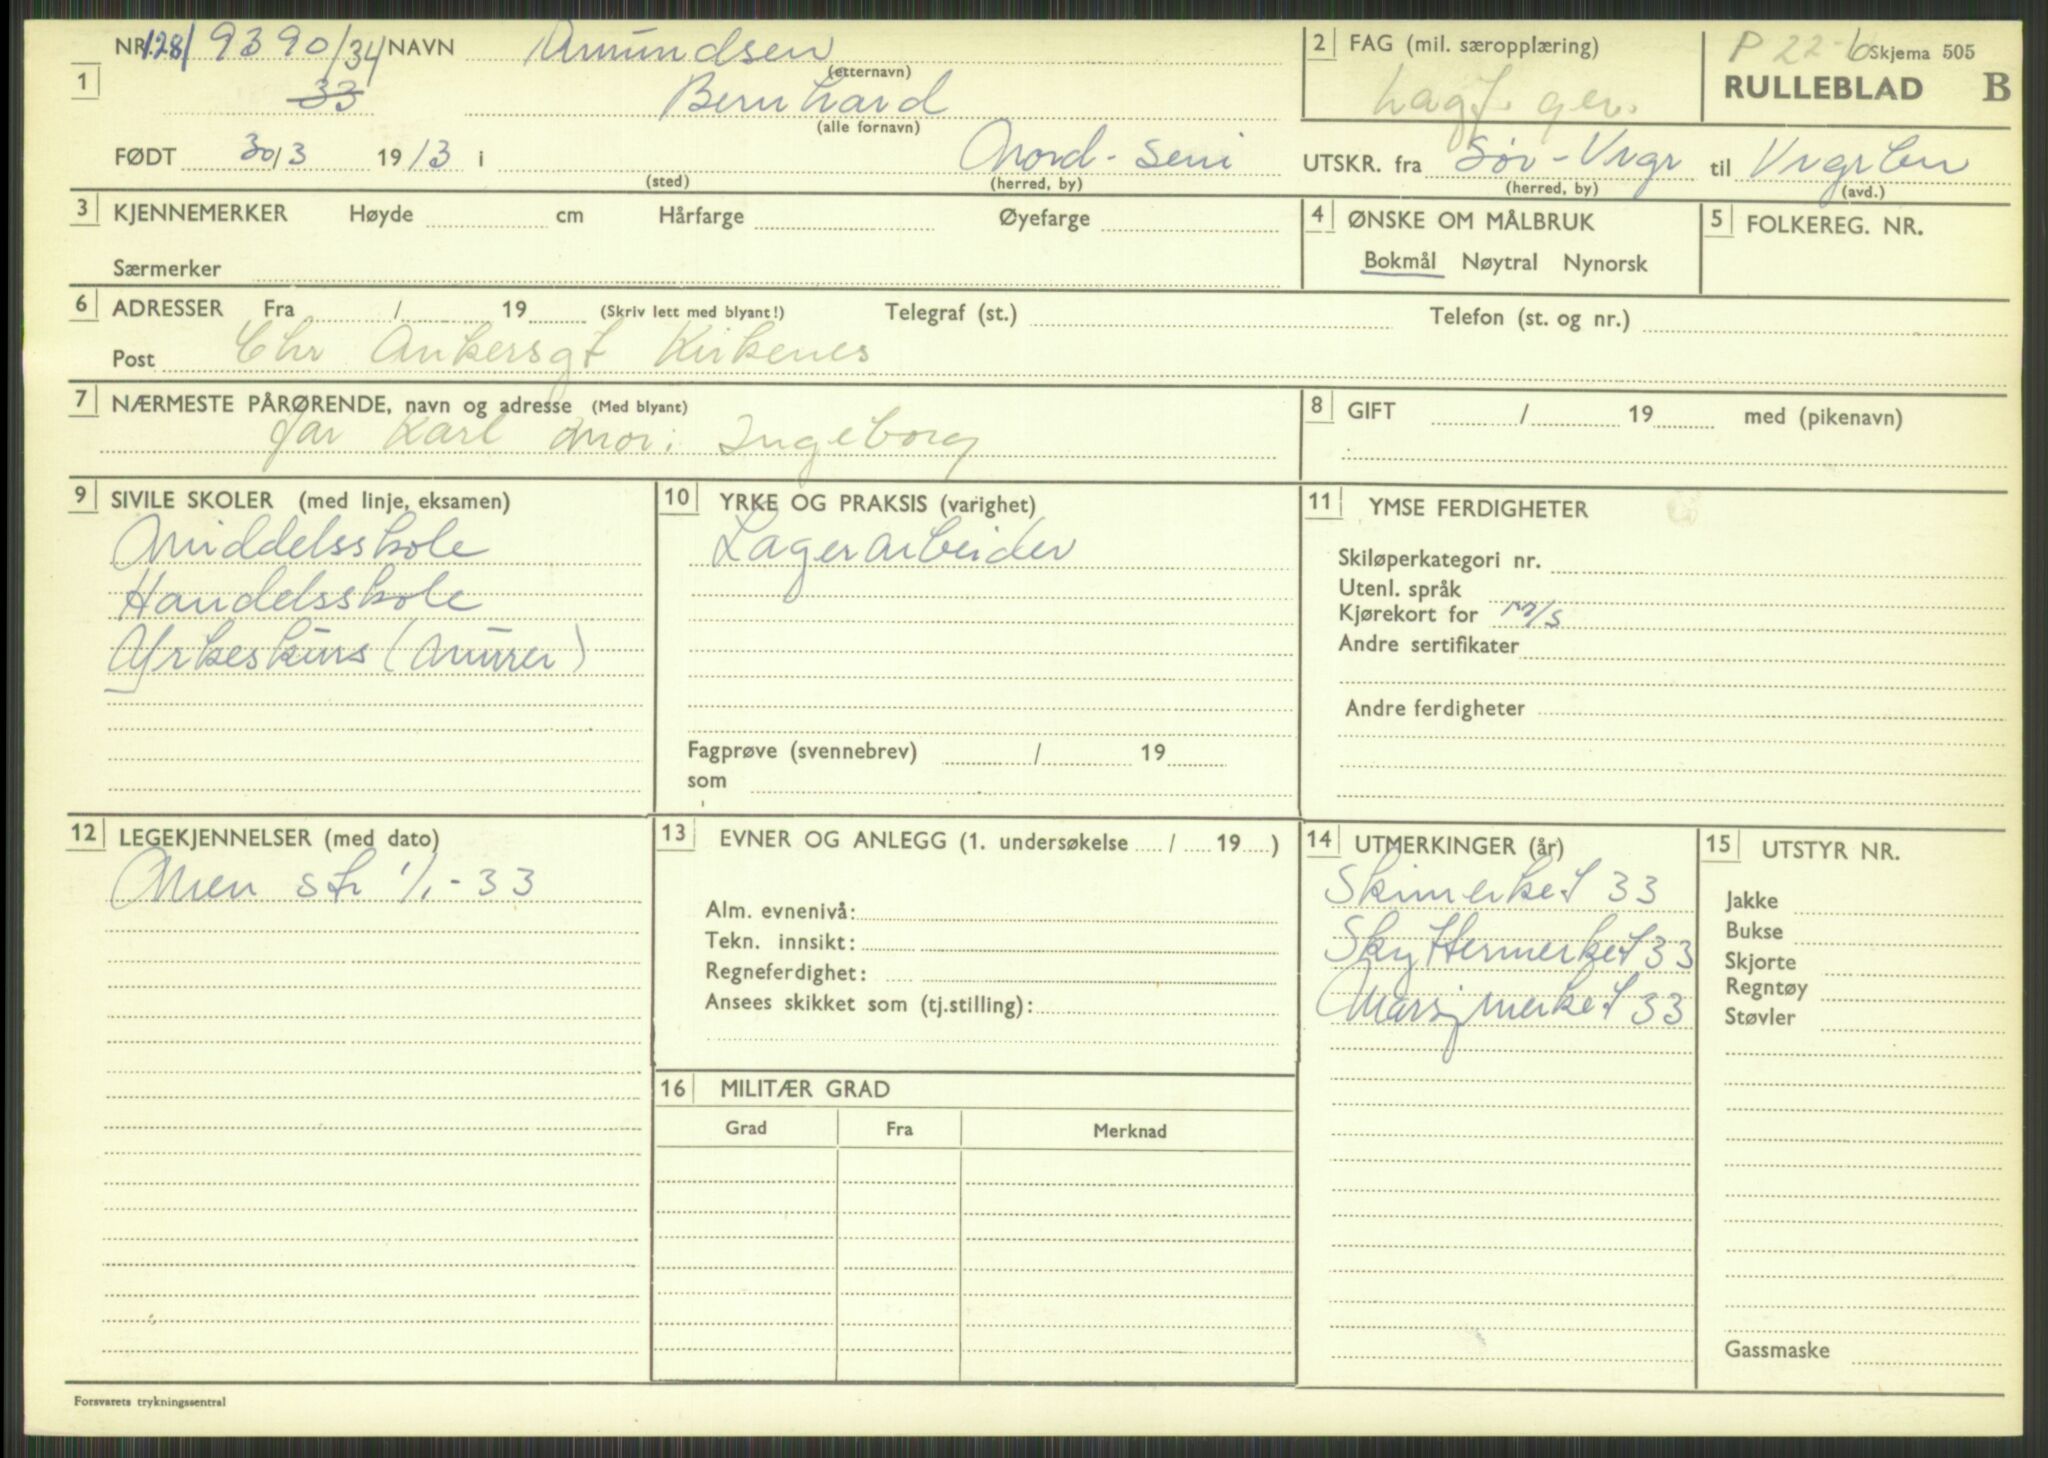 NR. 128/ 9390/34 NAVN Amundsen
(etternavn)
1 33 Bernhard
(alle fornavn)
FØDT 30/3 1913 i Nord-
(sted) (herred, by)
2 FAG (mil. særopplæring)
Lagf. gev.
P 22-6 Skjema 505
RULLEBLAD B
UTSKR. fra Sør-Vrgr til Vrgrbn
(herred, by) (avd.)
3 KJENNEMERKER Høyde cm Hårfarge Øyefarge
Særmerker
4 ØNSKE OM MÅLBRUK
Bokmål Nøytral Nynorsk
5 FOLKEREG. NR.
6 ADRESSER Fra / 19 (Skriv lett med blyant!) Telegraf (st.) Telefon (st. og nr.)
Post Chr Ankersgt Kirkenes
7 NÆRMESTE PÅRØRENDE, navn og adresse (Med blyant)
far Karl mor: Ingeborg
8 GIFT / 19 med (pikenavn)
9 SIVILE SKOLER (med linje, eksamen)
Middelsskole
Handelsskole
Yrkeskurs (Murer)
10 YRKE OG PRAKSIS (varighet)
Lagerarbeider
Fagprøve (svennebrev) / 19
som
11 YMSE FERDIGHETER
Skiløperkategori nr.
Utenl. språk
Kjørekort for m/s
Andre sertifikater
Andre ferdigheter
12 LEGEKJENNELSER (med dato)
str 1/1-33
13 EVNER OG ANLEGG (1. undersøkelse / 19 )
Alm. evnenivå:
Tekn. innsikt:
Regneferdighet:
Ansees skikket som (tj.stilling):
14 UTMERKINGER (år)
Skimerket 33
Skyttermerket 33
Marsjmerket 33
15 UTSTYR NR.
Jakke
Bukse
Skjorte
Regntøy
Støvler
Gassmaske
16 MILITÆR GRAD
Grad Fra Merknad
Forsvarets trykningssentral